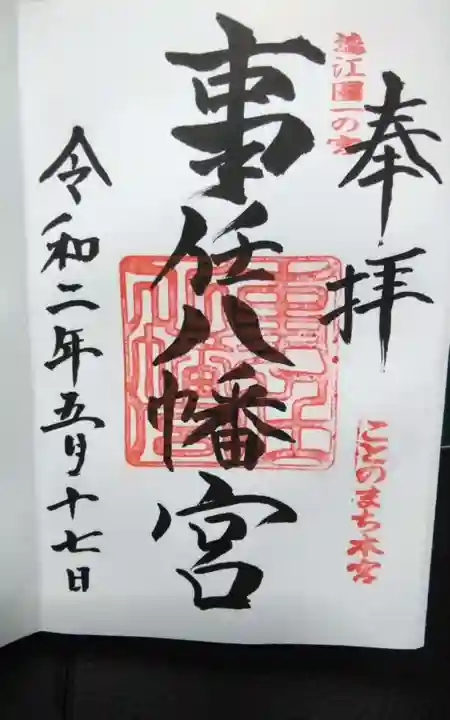 遠江國一の宮
奉拝
ことのまち本宮
事任八幡宮
令和二年五月十七日